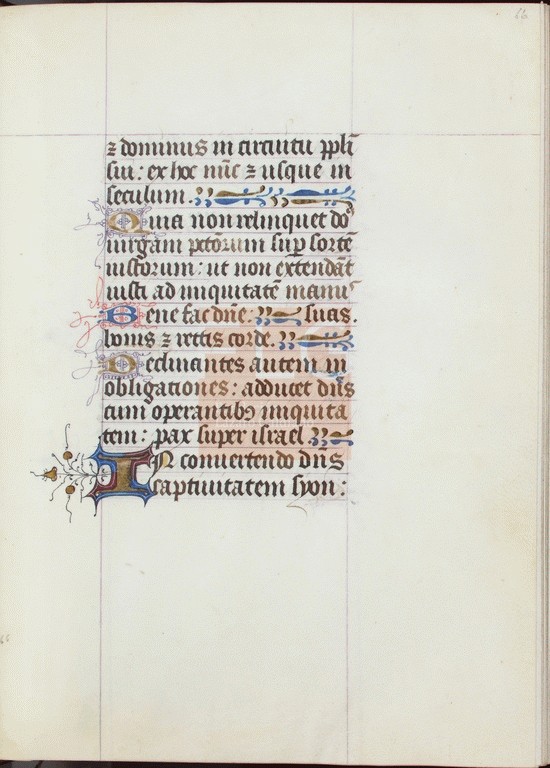 66
⁊ dominus in circuitu ppl̄i
sui: ex hoc nūc ⁊ usque in
seculum.
Quia non relinquet do᷒
uirgam pctōrum sup̄ sortē
iustorum: ut non extendāt
iusti ad iniquitatē manu᷒
Bene fac dn̄e: suas.
bonis ⁊ rectis corde.
Declinantes autem in
obligationes: adducet dn̄s
cum operantibꝫ iniquita
tem: pax super israel
IN conuertendo dn̄s
captiuitatem syon: